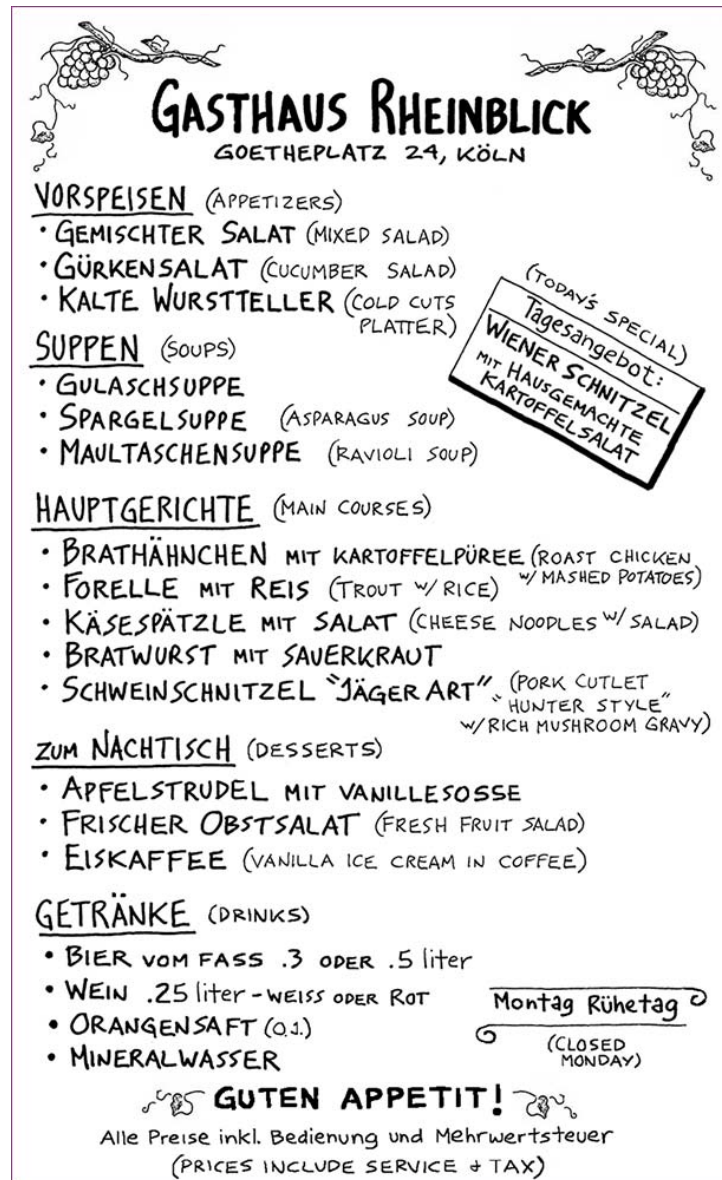 GASTHAUS RHEINBLICK
GOETHEPLATZ 24, KÖLN
VORSPEISEN (APPETIZERS)
• GEMISCHTER SALAT (MIXED SALAD)
• GÜRKENSALAT (CUCUMBER SALAD)
• KALTE WURSTTELLER (COLD CUTS
PLATTER)
(TODAY'S SPECIAL)
Tagesangebot:
WIENER SCHNITZEL
MIT HAUSGEMACHTE
KARTOFFELSALAT
SUPPEN (SOUPS)
• GULASCHSUPPE
• SPARGELSUPPE (ASPARAGUS SOUP)
• MAULTASCHENSUPPE (RAVIOLI SOUP)
HAUPTGERICHTE (MAIN COURSES)
• BRATHÄHNCHEN MIT KARTOFFELPÜREE (ROAST CHICKEN
W/ MASHED POTATOES)
• FORELLE MIT REIS (TROUT W/ RICE)
• KÄSESPÄTZLE MIT SALAT (CHEESE NOODLES W/ SALAD)
• BRATWURST MIT SAUERKRAUT
• SCHWEINSCHNITZEL "JÄGER ART" (PORK CUTLET
"HUNTER STYLE"
W/ RICH MUSHROOM GRAVY)
ZUM NACHTISCH (DESSERTS)
• APFELSTRUDEL MIT VANILLESOSSE
• FRISCHER OBSTSALAT (FRESH FRUIT SALAD)
• EISKAFFEE (VANILLA ICE CREAM IN COFFEE)
GETRÄNKE (DRINKS)
• BIER VOM FASS .3 ODER .5 liter
• WEIN .25 liter - WEISS ODER ROT
• ORANGENSAFT (O.J.)
• MINERALWASSER
Montag Rühetag
(CLOSED
MONDAY)
GUTEN APPETIT!
Alle Preise inkl. Bedienung und Mehrwertsteuer
(PRICES INCLUDE SERVICE + TAX)